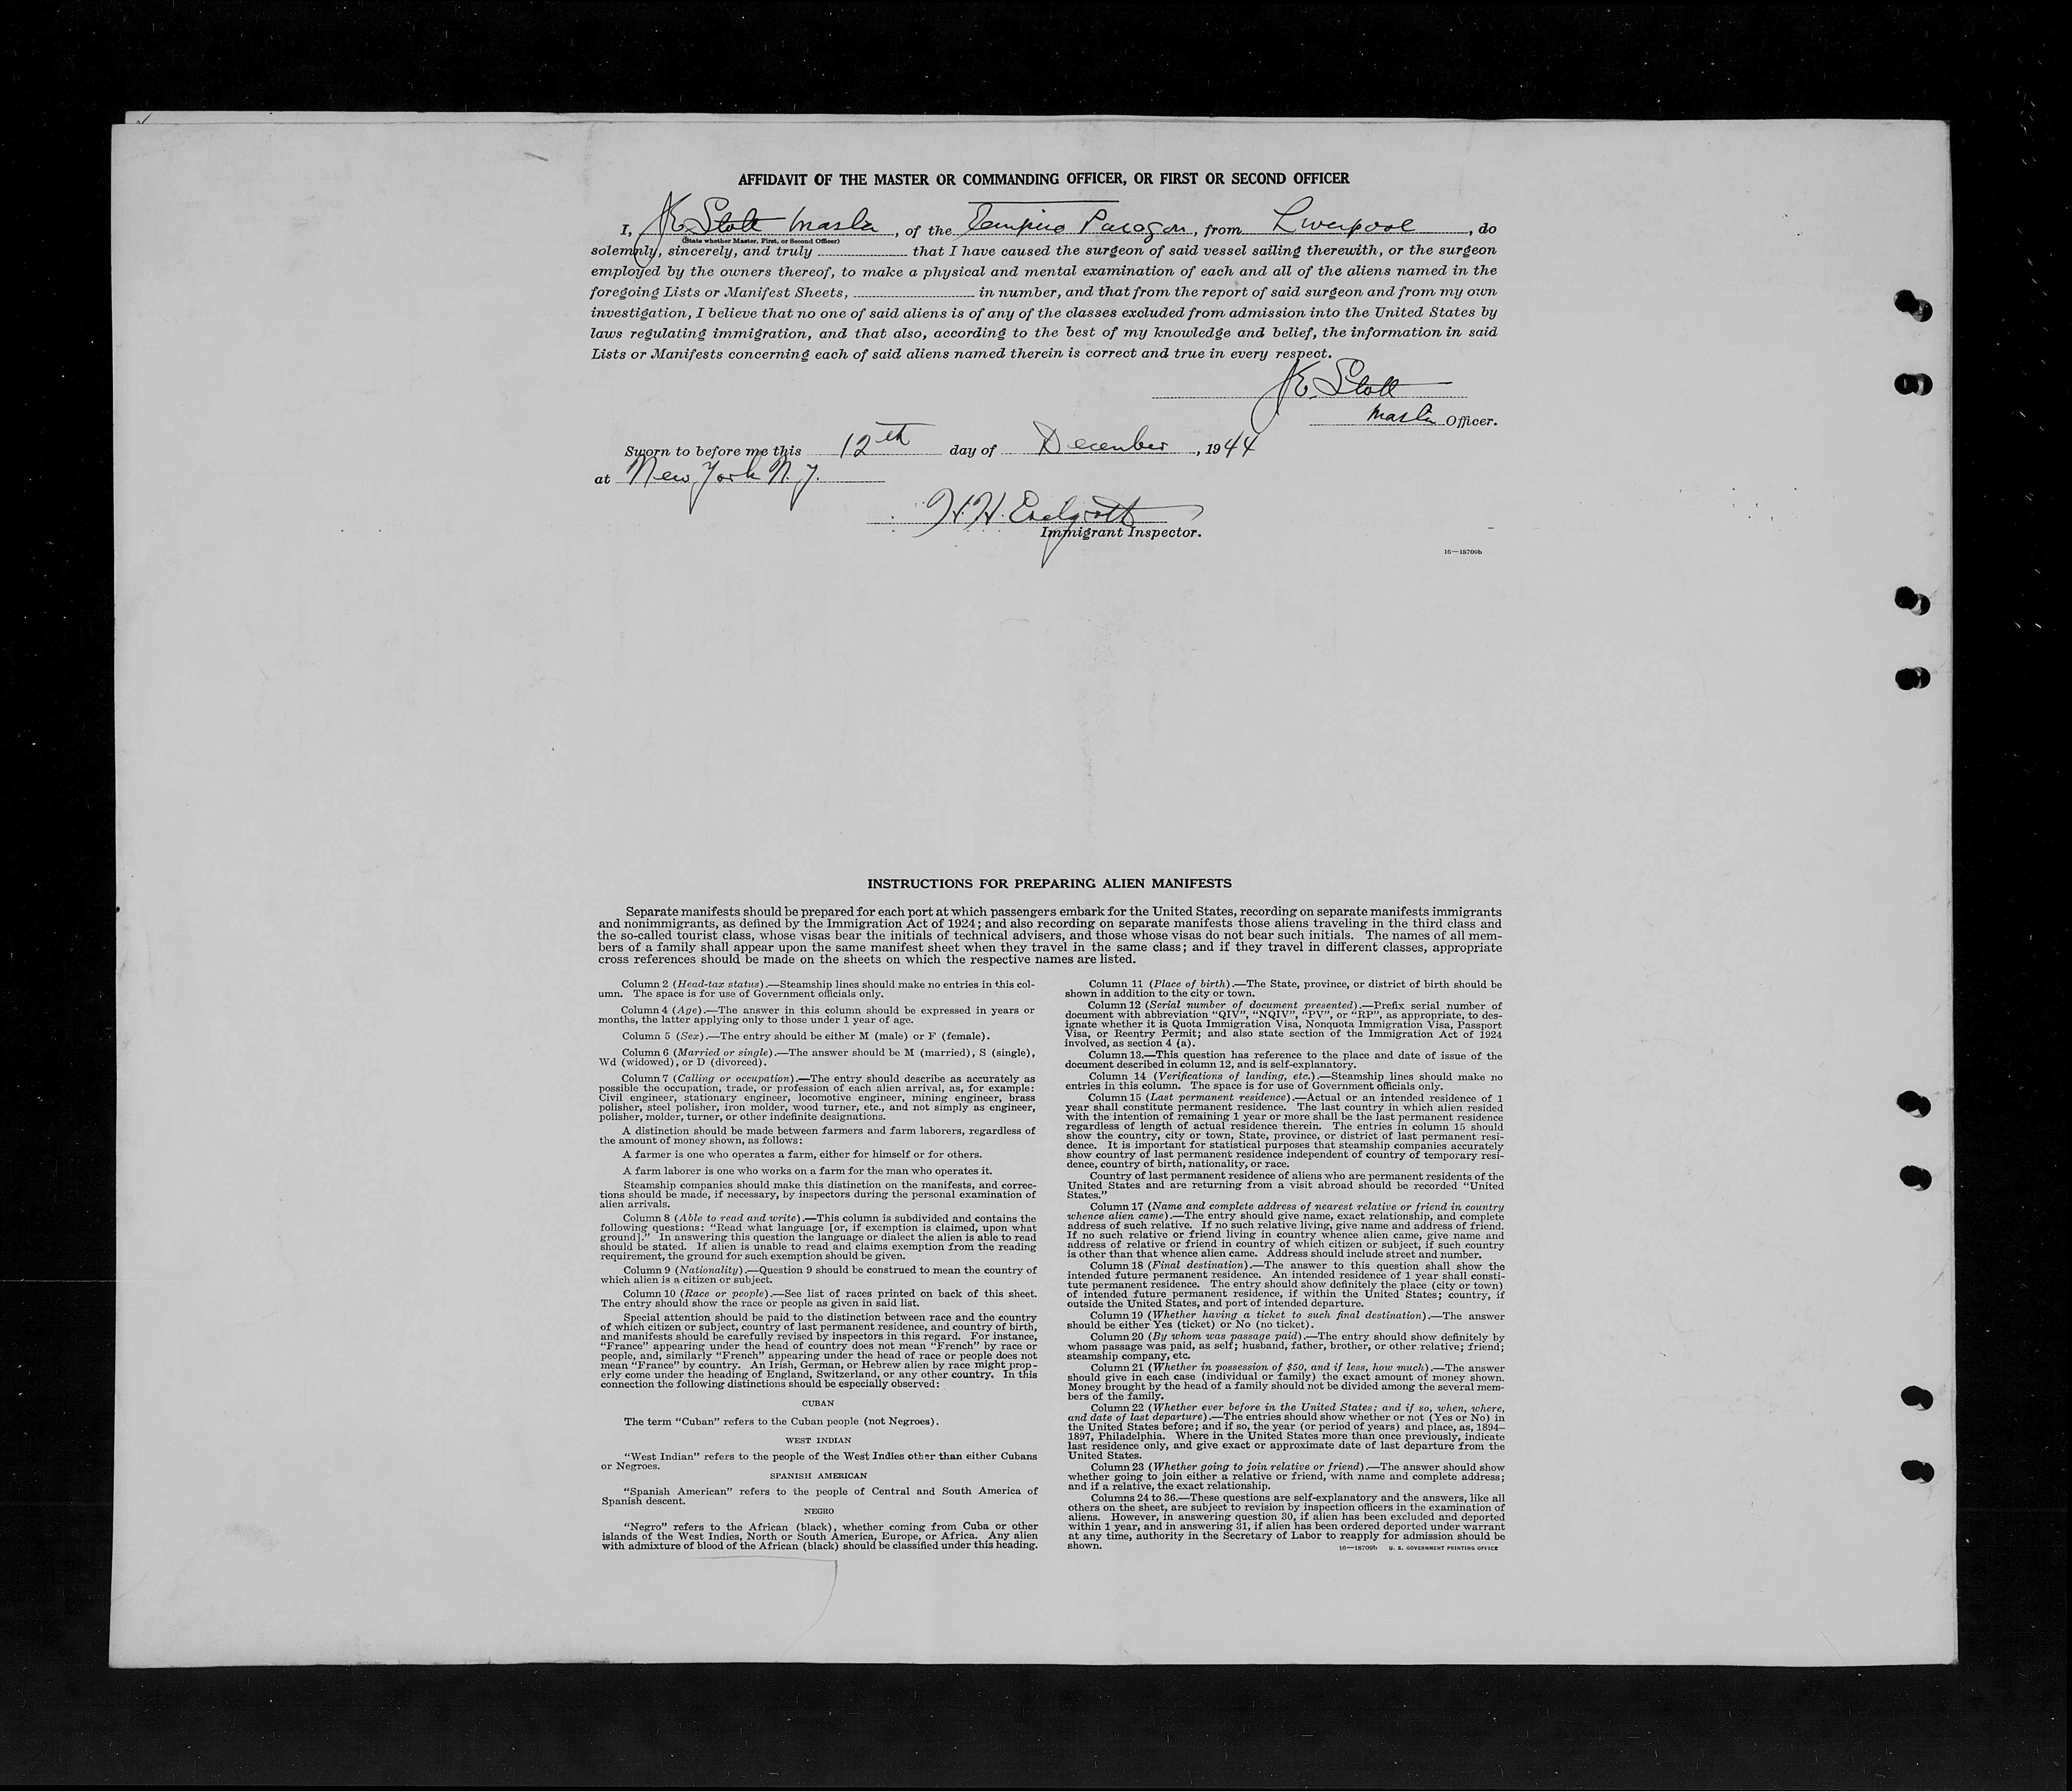 AFFIDAVIT OF THE MASTER OR COMMANDING OFFICER, OR FIRST OR SECOND OFFICER
I, JE. Stott Master, of the Empire Paragon, from Liverpool, do
(State whether Master, First, or Second Officer)
solemnly, sincerely, and truly that I have caused the surgeon of said vessel sailing therewith, or the surgeon
employed by the owners thereof, to make a physical and mental examination of each and all of the aliens named in the
foregoing Lists or Manifest Sheets, in number, and that from the report of said surgeon and from my own
investigation, I believe that no one of said aliens is of any of the classes excluded from admission into the United States by
laws regulating immigration, and that also, according to the best of my knowledge and belief, the information in said
Lists or Manifests concerning each of said aliens named therein is correct and true in every respect.
JE. Stott
Master Officer.
Sworn to before me this 12th day of December, 1944
at New York N.Y.
H.H.
Immigrant Inspector.
16—18709b
INSTRUCTIONS FOR PREPARING ALIEN MANIFESTS
Separate manifests should be prepared for each port at which passengers embark for the United States, recording on separate manifests immigrants
and nonimmigrants, as defined by the Immigration Act of 1924; and also recording on separate manifests those aliens traveling in the third class and
the so-called tourist class, whose visas bear the initials of technical advisers, and those whose visas do not bear such initials. The names of all mem-
bers of a family shall appear upon the same manifest sheet when they travel in the same class; and if they travel in different classes, appropriate
cross references should be made on the sheets on which the respective names are listed.
Column 2 (Head-tax status).—Steamship lines should make no entries in this col-
umn. The space is for use of Government officials only.
Column 4 (Age).—The answer in this column should be expressed in years or
months, the latter applying only to those under 1 year of age.
Column 5 (Sex).—The entry should be either M (male) or F (female).
Column 6 (Married or single).—The answer should be M (married), S (single),
Wd (widowed), or D (divorced).
Column 7 (Calling or occupation).—The entry should describe as accurately as
possible the occupation, trade, or profession of each alien arrival, as, for example:
Civil engineer, stationary engineer, locomotive engineer, mining engineer, brass
polisher, steel polisher, iron molder, wood turner, etc., and not simply as engineer,
polisher, molder, turner, or other indefinite designations.
A distinction should be made between farmers and farm laborers, regardless of
the amount of money shown, as follows:
A farmer is one who operates a farm, either for himself or for others.
A farm laborer is one who works on a farm for the man who operates it.
Steamship companies should make this distinction on the manifests, and correc-
tions should be made, if necessary, by inspectors during the personal examination of
alien arrivals.
Column 8 (Able to read and write).—This column is subdivided and contains the
following questions: "Read what language [or, if exemption is claimed, upon what
ground]." In answering this question the language or dialect the alien is able to read
should be stated. If alien is unable to read and claims exemption from the reading
requirement, the ground for such exemption should be given.
Column 9 (Nationality).—Question 9 should be construed to mean the country of
which alien is a citizen or subject.
Column 10 (Race or people).—See list of races printed on back of this sheet.
The entry should show the race or people as given in said list.
Special attention should be paid to the distinction between race and the country
of which citizen or subject, country of last permanent residence, and country of birth,
and manifests should be carefully revised by inspectors in this regard. For instance,
"France" appearing under the head of country does not mean "French" by race or
people, and, similarly "French" appearing under the head of race or people does not
mean "France" by country. An Irish, German, or Hebrew alien by race might prop-
erly come under the heading of England, Switzerland, or any other country. In this
connection the following distinctions should be especially observed:
CUBAN
The term "Cuban" refers to the Cuban people (not Negroes).
WEST INDIAN
"West Indian" refers to the people of the West Indies other than either Cubans
or Negroes.
SPANISH AMERICAN
"Spanish American" refers to the people of Central and South America of
Spanish descent.
NEGRO
"Negro" refers to the African (black), whether coming from Cuba or other
islands of the West Indies, North or South America, Europe, or Africa. Any alien
with admixture of blood of the African (black) should be classified under this heading.
Column 11 (Place of birth).—The State, province, or district of birth should be
shown in addition to the city or town.
Column 12 (Serial number of document presented).—Prefix serial number of
document with abbreviation "QIV", "NQIV", "PV", or "RP", as appropriate, to des-
ignate whether it is Quota Immigration Visa, Nonquota Immigration Visa, Passport
Visa, or Reentry Permit; and also state section of the Immigration Act of 1924
involved, as section 4 (a).
Column 13.—This question has reference to the place and date of issue of the
document described in column 12, and is self-explanatory.
Column 14 (Verifications of landing, etc.).—Steamship lines should make no
entries in this column. The space is for use of Government officials only.
Column 15 (Last permanent residence).—Actual or an intended residence of 1
year shall constitute permanent residence. The last country in which alien resided
with the intention of remaining 1 year or more shall be the last permanent residence
regardless of length of actual residence therein. The entries in column 15 should
show the country, city or town, State, province, or district of last permanent resi-
dence. It is important for statistical purposes that steamship companies accurately
show country of last permanent residence independent of country of temporary resi-
dence, country of birth, nationality, or race.
Country of last permanent residence of aliens who are permanent residents of the
United States and are returning from a visit abroad should be recorded "United
States."
Column 17 (Name and complete address of nearest relative or friend in country
whence alien came).—The entry should give name, exact relationship, and complete
address of such relative. If no such relative living, give name and address of friend.
If no such relative or friend living in country whence alien came, give name and
address of relative or friend in country of which citizen or subject, if such country
is other than that whence alien came. Address should include street and number.
Column 18 (Final destination).—The answer to this question shall show the
intended future permanent residence. An intended residence of 1 year shall consti-
tute permanent residence. The entry should show definitely the place (city or town)
of intended future permanent residence, if within the United States; country, if
outside the United States, and port of intended departure.
Column 19 (Whether having a ticket to such final destination).—The answer
should be either Yes (ticket) or No (no ticket).
Column 20 (By whom was passage paid).—The entry should show definitely by
whom passage was paid, as self; husband, father, brother, or other relative; friend;
steamship company, etc.
Column 21 (Whether in possession of $50, and if less, how much).—The answer
should give in each case (individual or family) the exact amount of money shown.
Money brought by the head of a family should not be divided among the several mem-
bers of the family.
Column 22 (Whether ever before in the United States; and if so, when, where,
and date of last departure).—The entries should show whether or not (Yes or No) in
the United States before; and if so, the year (or period of years) and place, as, 1894–
1897, Philadelphia. Where in the United States more than once previously, indicate
last residence only, and give exact or approximate date of last departure from the
United States.
Column 23 (Whether going to join relative or friend).—The answer should show
whether going to join either a relative or friend, with name and complete address;
and if a relative, the exact relationship.
Columns 24 to 36.—These questions are self-explanatory and the answers, like all
others on the sheet, are subject to revision by inspection officers in the examination of
aliens. However, in answering question 30, if alien has been excluded and deported
within 1 year, and in answering 31, if alien has been ordered deported under warrant
at any time, authority in the Secretary of Labor to reapply for admission should be
shown.
16—18709b U. S. GOVERNMENT PRINTING OFFICE